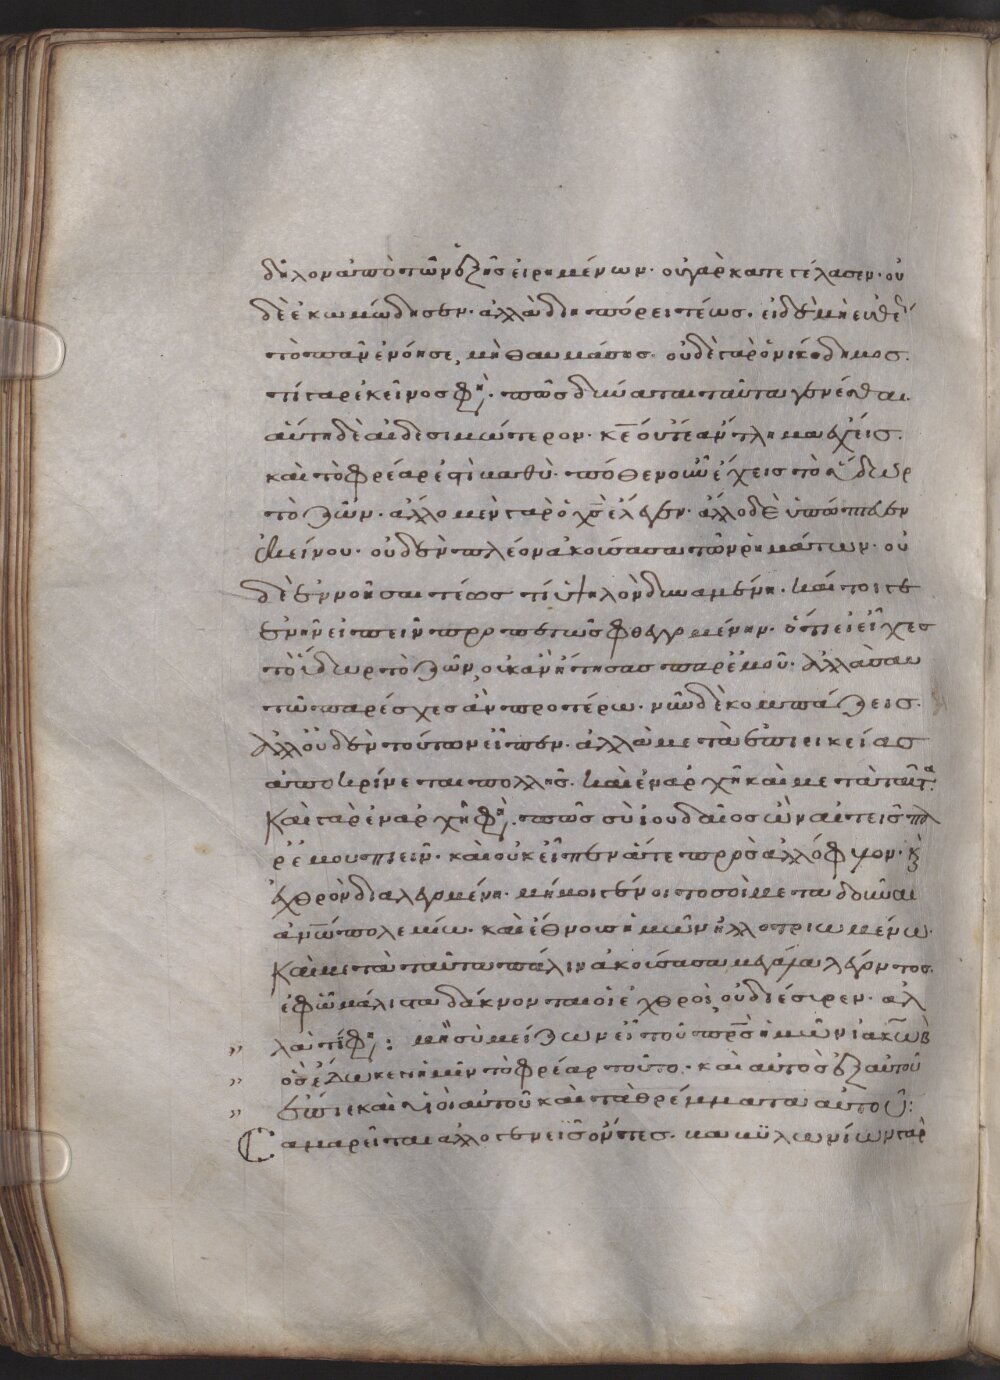 δῆλον ἀπὸ τῶν ἑξῆς εἰρημένων· οὐ γὰρ κατεγέλασεν· οὐ
δὲ ἐκωμώδησεν· ἀλλὰ διηπόρει τέως. εἰ δὲ μὴ εὐθέ
τὸ πᾶν ἐνόησε, μὴ θαυμάσης· οὐδὲ γὰρ ὁ νικόδημος.
τί γὰρ ἐκεῖνος φη· πῶς δύναται ταῦτα γενέσθαι.
αὕτη δὲ αἰδεσιμώτερον· κε οὔτε ἄντλημα ἔχεις.
καὶ τὸ φρέαρ ἐστὶ βαθὺ· πόθεν οὖν ἔχεις τὸ ὕδωρ
τὸ ζῶν· ἄλλο μὲν γὰρ ὁ χς ἔλεγεν· ἄλλο δὲ ὑπώπτευεν
ἐκείνου· οὐδὲν πλέον ἀκούσασα τῶν ρημάτων· οὐ
δὲ ἐννοῆσαι τέως τί ὑψηλὸν δυναμένη. καίτοι γε
ἐνῆν εἰπεῖν προπετῶς φθεγγομένην· ὅτι εἰ εἶχες
τὸ ὕδωρ τὸ ζῶν, οὐκ ἂν ἤτησας παρ ἐμοῦ· ἀλλὰ σαυ
τῶ παρέσχες ἂν προτέρω· νῦν δὲ κομπάζεις.
ἀλλ οὐδὲν τούτων εἶπεν· ἀλλὰ μετὰ ἐπιεικείας
ἀποκρίνεται πολλῆς. καὶ ἐν ἀρχῆ καὶ μετὰ ταῦτα·
Καὶ γὰρ ἐν ἀρχῆ φη· πῶς σὺ ἰουδαῖος ὢν αἰτεῖς πα
ρ ἐμοῦ πιεῖν· καὶ οὐκ εἶπεν ἅτε πρὸς ἀλλόφυλον· κ
ἐχθρὸν διαλεγομένη· μή μοι γένοιτο σοὶ μεταδοῦναι
ἀνω πολεμίω· καὶ ἔθνους ἡμῶν ἠλλοτριωμένω·
Καὶ μετὰ ταῦτα πάλιν ἀκούσασα μεγάλα λέγοντος.
ἐφ ὧ μάλιστα δάκνονται οἱ ἐχθροὶ, οὐ διέσυρεν· ἀλ
λὰ τί φη: μὴ σὺ μείζων εἶ τοῦ πρς ἡμῶν ἰακὼβ
ὃς ἔδωκεν ἡμῖν τὸ φρέαρ τοῦτο· καὶ αὐτὸς ἐξ αὐτοῦ
ἔπιε καὶ υἱοὶ αὐτοῦ καὶ τὰ θρέμματα αὐτοῦ:
Σαμαρεῖται ἀλλογενεῖς ὄντες· βαβυλωνίων γὰρ